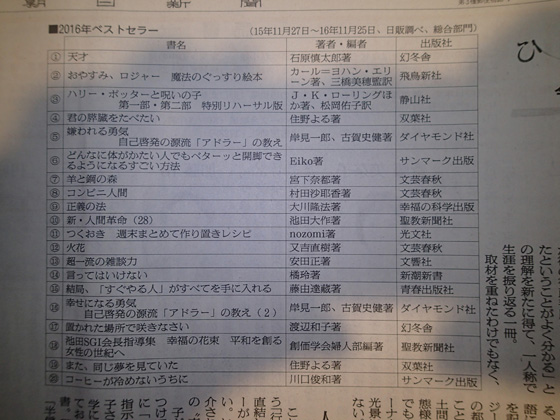 ■2016年ベストセラー　(15年11月27日〜16年11月25日、日販調べ、総合部門)
書名　著者・編者　出版社
① 天才　石原慎太郎著　幻冬舎
② おやすみ、ロジャー　魔法のぐっすり絵本　カール=ヨハン・エリーン著、三橋美穂監訳　飛鳥新社
③ ハリー・ポッターと呪いの子
第一部・第二部　特別リハーサル版　J・K・ローリングほか著、松岡佑子訳　静山社
④ 君の膵臓をたべたい　住野よる著　双葉社
⑤ 嫌われる勇気
自己啓発の源流「アドラー」の教え　岸見一郎、古賀史健著　ダイヤモンド社
⑥ どんなに体がかたい人でもベターッと開脚で
きるようになるすごい方法　Eiko著　サンマーク出版
⑦ 羊と鋼の森　宮下奈都著　文芸春秋
⑧ コンビニ人間　村田沙耶香著　文芸春秋
⑨ 正義の法　大川隆法著　幸福の科学出版
⑩ 新・人間革命(28)　池田大作著　聖教新聞社
⑪ つくおき　週末まとめて作り置きレシピ　nozomi著　光文社
⑫ 火花　又吉直樹著　文芸春秋
⑬ 超一流の雑談力　安田正著　文響社
⑭ 言ってはいけない　橘玲著　新潮新書
⑮ 結局、「すぐやる人」がすべてを手に入れる　藤由達蔵著　青春出版社
⑯ 幸せになる勇気
自己啓発の源流「アドラー」の教え(2)　岸見一郎、古賀史健著　ダイヤモンド社
⑰ 置かれた場所で咲きなさい　渡辺和子著　幻冬舎
⑱ 池田SGI会長指導集　幸福の花束　平和を創る
女性の世紀へ　創価学会婦人部編　聖教新聞社
⑲ また、同じ夢を見ていた　住野よる著　双葉社
⑳ コーヒーが冷めないうちに　川口俊和著　サンマーク出版
ひ
たということがよく分かる」
の理解を新たに得て、一人称で
生涯を振り返る一冊。
取材を重ねたわけでもなく、